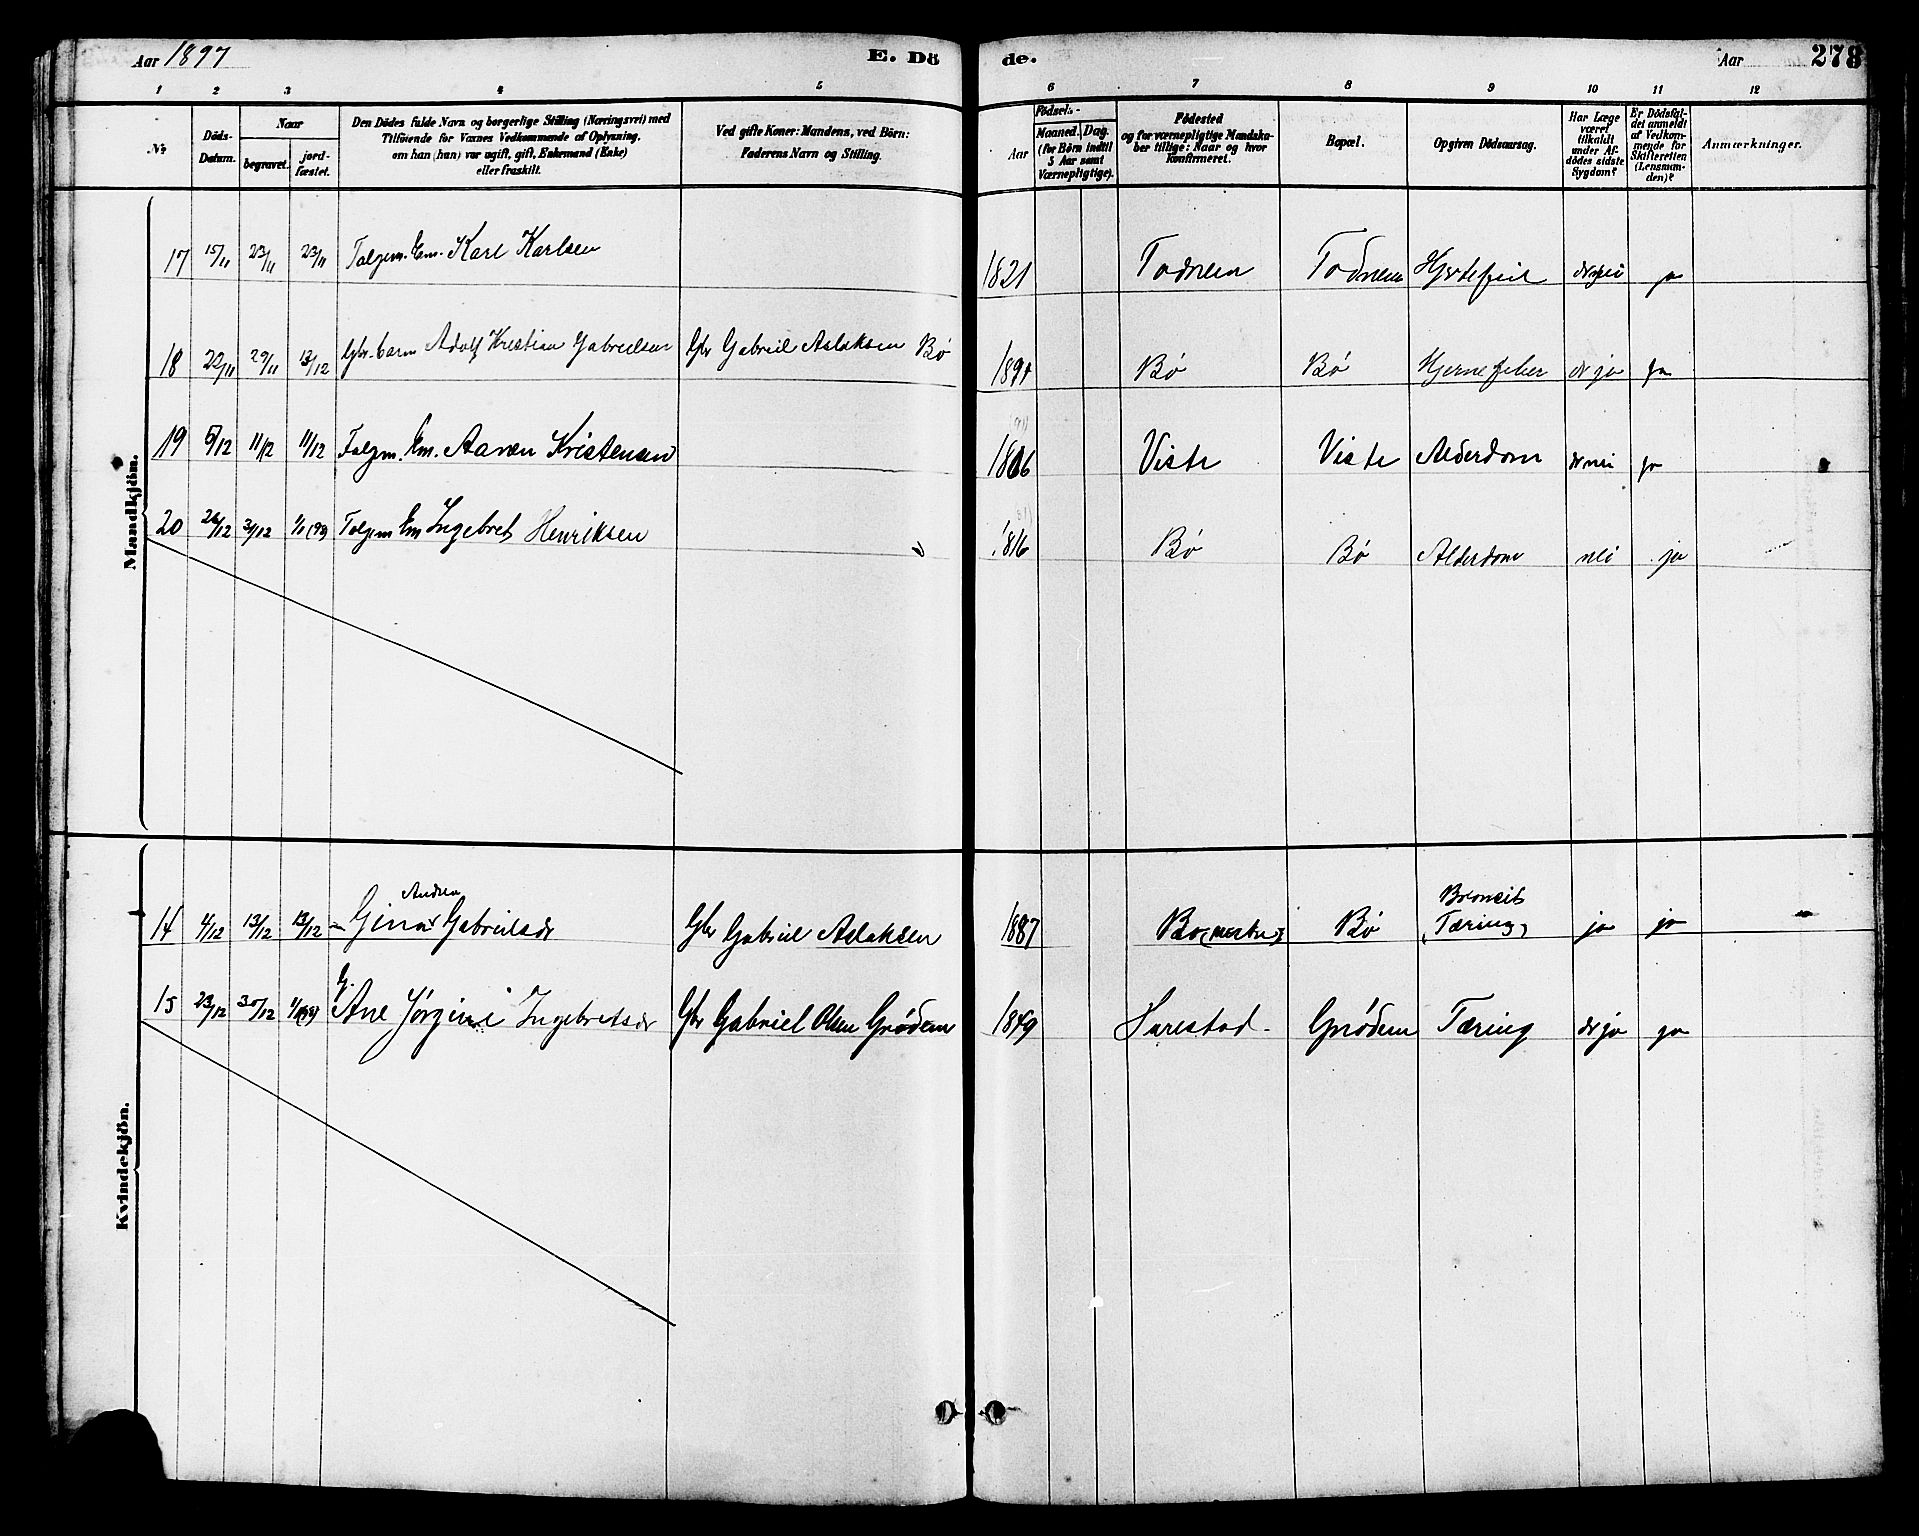 Aar 1897 E. Dö de. Aar 278
1 2 3 4 5 6 7 8 9 10 11 12
No
Döds-
Datum.
Naar
begravet.
jord-
fæstet.
Den Dödes fulde Navn og borgerlige Stilling (Næringsvei) med
Tilföiende for Voxnes Vedkommende af Oplysning,
om han (hun) var ugift, gift, Enkemand (Enke)
eller fraskilt.
Ved gifte Koner: Mandens, ved Börn:
Faderens Navn og Stilling.
Födsels-
Aar
Maaned. Dag.
(for Börn indtil
5 Aar samt
Værnepligtige).
Födested
og for værnepligtige Mandska-
ber tillige: Naar og hvor
konfirmeret.
Bopæl.
Opgiven Dödsaarsag.
Har Læge
været
tilkaldt
under Af-
dödes sidste
Sygdom?
Er Dödsfal-
det anmeldt
af Vedkom-
mende for
Skifteretten
(Lensman-
den)?
Anmærkninger.
Mandkjön.
17 15/11 23/11 23/11 Folgem. Em. Karl Karlsen 1821 Todnem Todnem Hjertefeil nei ja
18 22/11 29/11 13/12 Gbr. barn Adolf Kristian Gabrielsen Gbr Gabriel Aslaksen Bø 1891 Bø Bø Hjernefeber ja ja
19 5/12 11/12 11/12 Folgem. Em. Aaren Kristensen 1806 Viste Viste Alderdom nei ja
20 26/12 31/12 1/1 (98) Folgem Em Ingebret Henriksen 1816 Bø Bø Alderdom nei ja
Kvindekjön.
Andrea
14 4/12 13/12 13/12 – Gina Gabrielsdr Gbr Gabriel Aslaksen 1887 Bø Bø Broncit
(Tæring) ja ja
15 23/12 30/12 1/1 (98) G. Ane Jørgine Ingebretsdr Gbr Gabriel Olsen Grødem 1849 Harestad Grødem Tæring ja ja